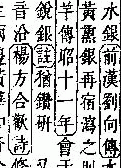 水銀前漢劉向傳
黃黑銀再宿爲之
羊傳昭十一年會于
銳銀註猶鑽研
音沿楊方合歡詩